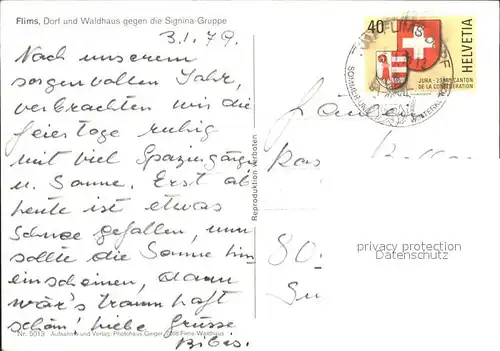 Flims, Dorf und Waldhaus gegen die Signina-Gruppe
3.1.79.
Nach unserem
sorgenvollen Jahr,
verbrachten wir die
Feiertage ruhig
mit viel Spaziergänge
u. Sonne. Erst ab
heute ist etwas
Schnee gefallen, nun
sollte die Sonne hin
einscheinen, dann
wär's traumhaft
schön! Liebe Grüsse
Bibes.
Nr. 5013 Aufnahme und Verlag: Photohaus Geiger, Flims-Waldhaus
Reproduktion verboten
40
HELVETIA
JURA - 23e CANTON
DE LA CONFEDERATION
80.
privacy protection
Datenschutz